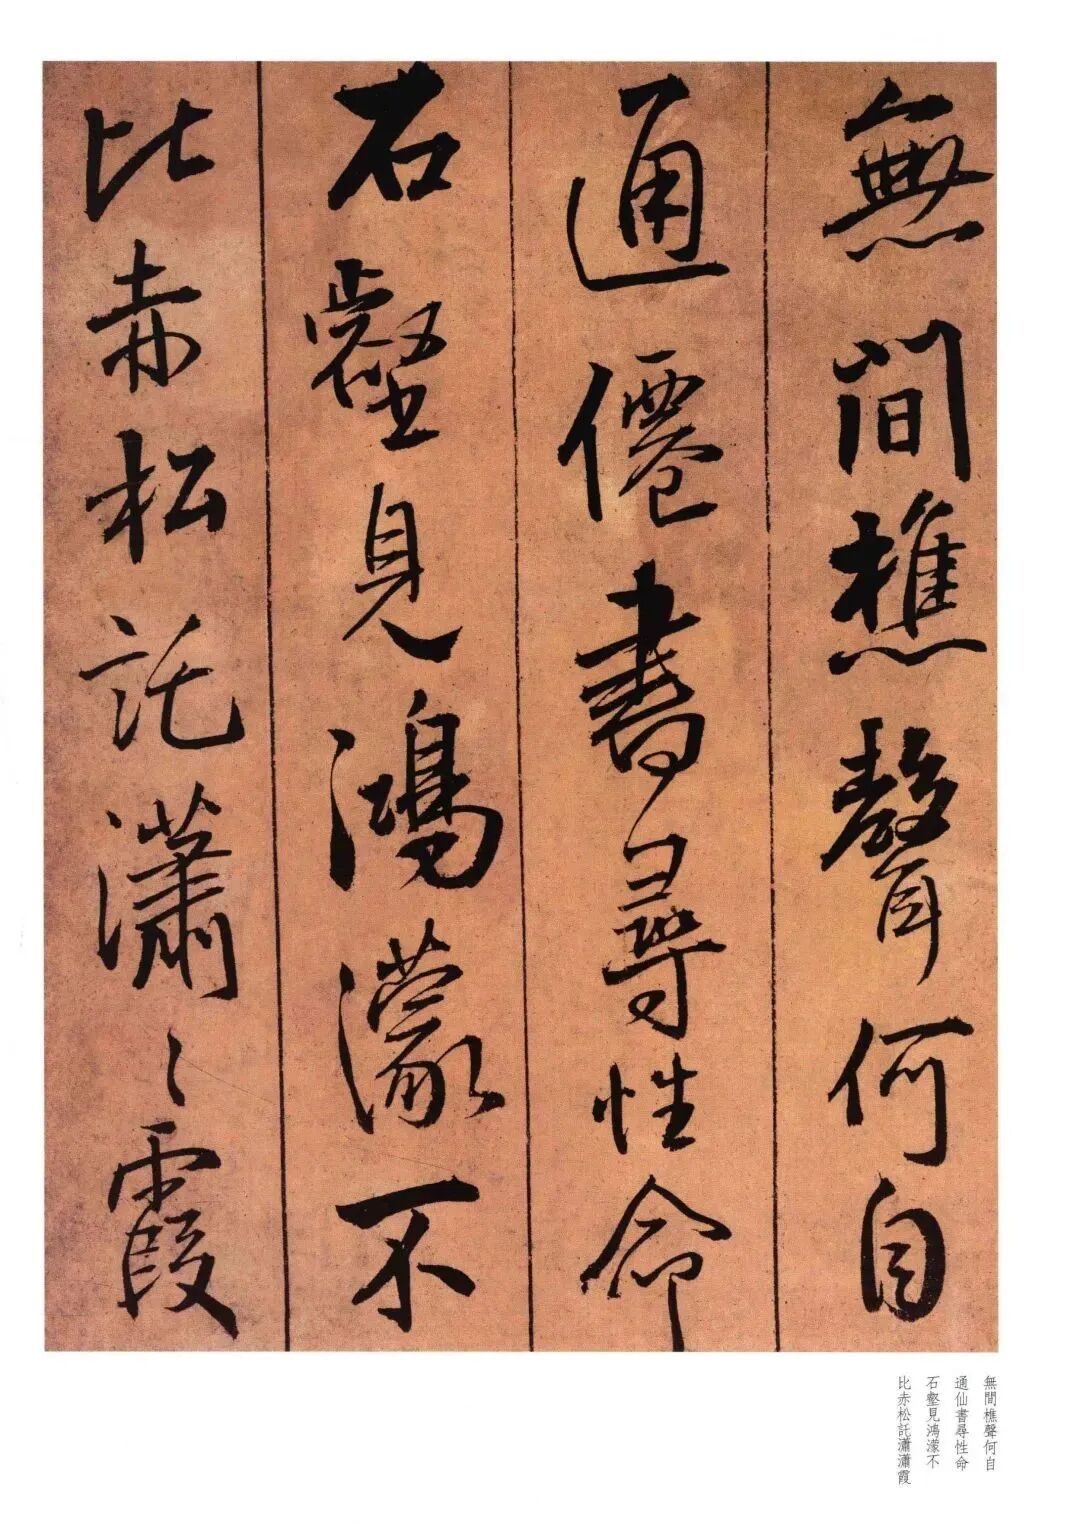 無間樵聲何自
通僊書尋性命
石壑見鴻濛不
比赤松託瀟〻霞
無間樵聲何自
通仙書尋性命
石壑見鴻濛不
比赤松託瀟瀟霞